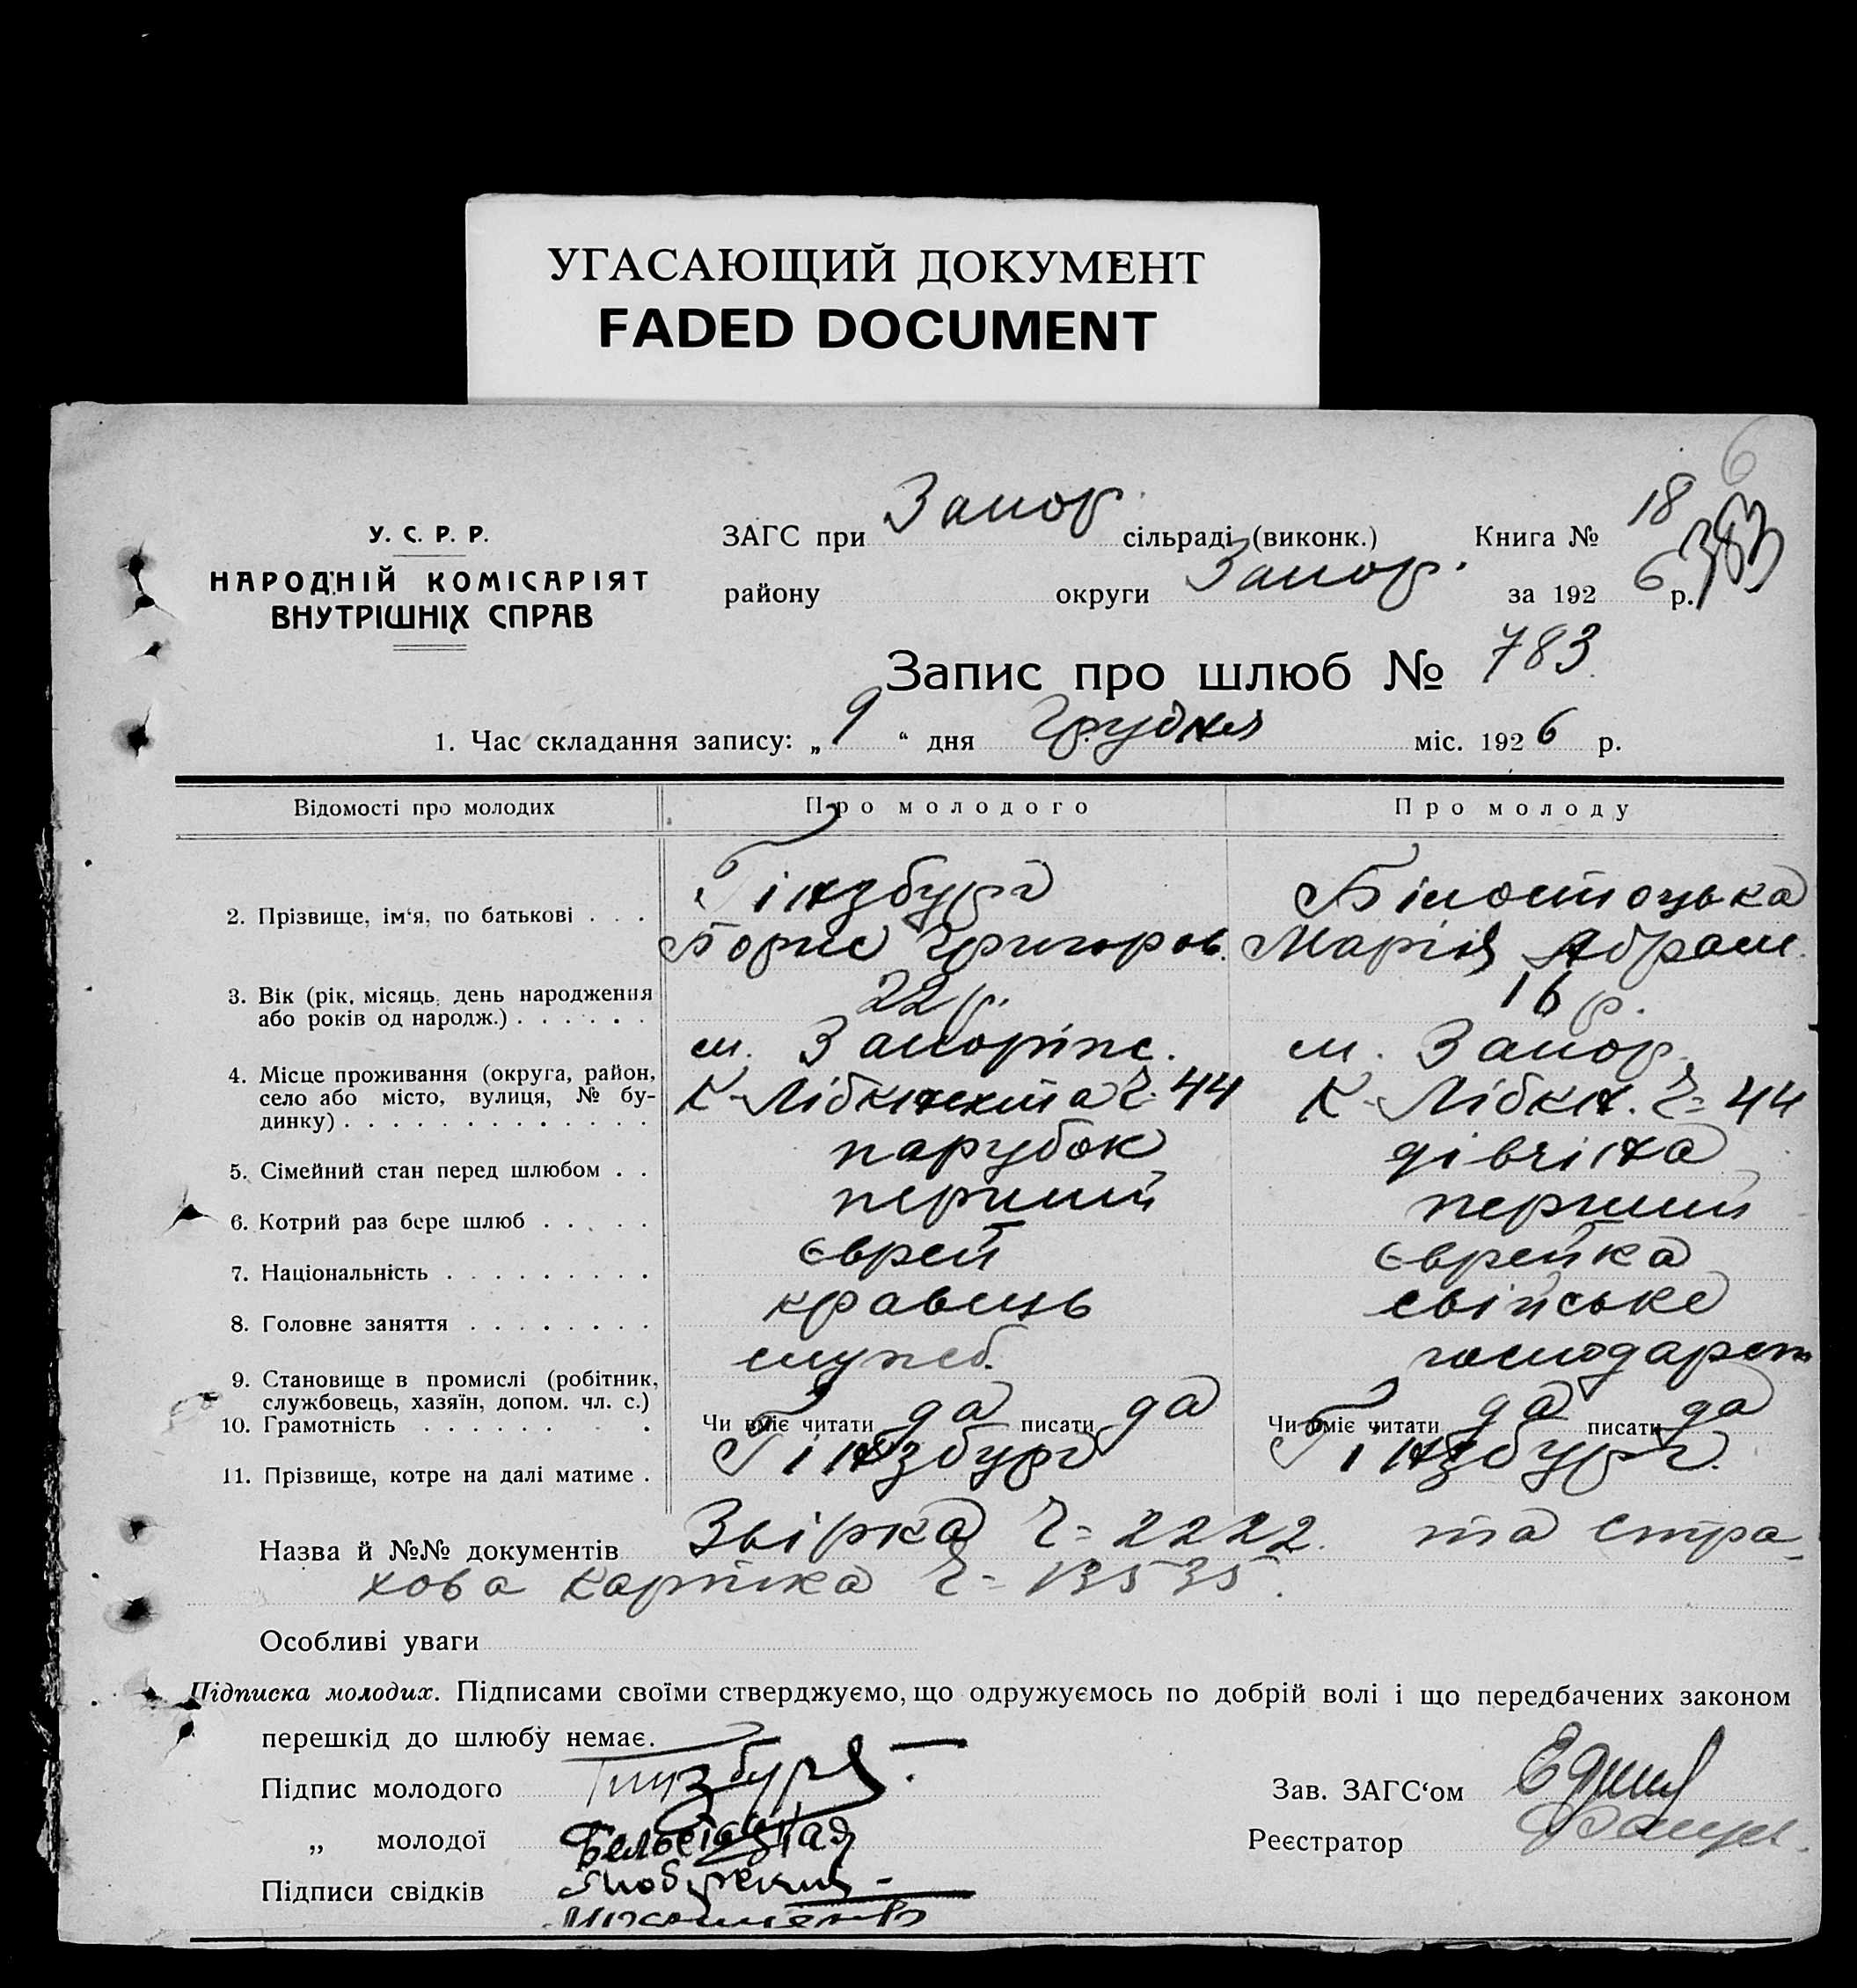 УГАСАЮЩИЙ ДОКУМЕНТ
FADED DOCUMENT
6
У. С. Р. Р.
НАРОДНІЙ КОМІСАРІЯТ
ВНУТРІШНІХ СПРАВ
ЗАГС при Запор. сільраді (виконк.) Книга № 18
383
району округи Запор. за 1926 р.
Запис про шлюб № 783
1. Час складання запису: „9“ дня Грудня міс. 1926 р.
Відомості про молодих Про молодого Про молоду
2. Прізвище, ім‘я, по батькові . . . Гінзбург Білостоцька
Борис Григоров. Марія Абрам.
3. Вік (рік, місяць, день народження 22 р. 16 р.
або років од народж.) . . . . . .
м. Запоріж. м. Запор.
4. Місце проживання (округа, район,
село або місто, вулиця, № бу- К-Лібкнехта Ч. 44 К-Лібкн. Ч= 44
динку) . . . . . . . . . . . . . .
5. Сімейний стан перед шлюбом . . парубок дівчіна
6. Котрий раз бере шлюб . . . . . перший перший
7. Національність . . . . . . . . . єврей єврейка
8. Головне заняття . . . . . . . . кравець свійське
9. Становище в промислі (робітник, служб. господарст
службовець, хазяїн, допом. чл. с.)
10. Грамотність . . . . . . . . Чи вміє читати да писати да Чи вміє читати да писати да
11. Прізвище, котре на далі матиме . Гінзбург Гінзбург.
Назва й №№ документів Звірка Ч= 2222. та стра-
хова картка Ч= 13535.
Особливі уваги
Підписка молодих. Підписами своїми стверджуємо, що одружуємось по добрій волі і що передбачених законом
перешкід до шлюбу немає.
Підпис молодого Гинзбург Зав. ЗАГС‘ом
„ молодої Белостоцкая Реєстратор
Підписи свідків